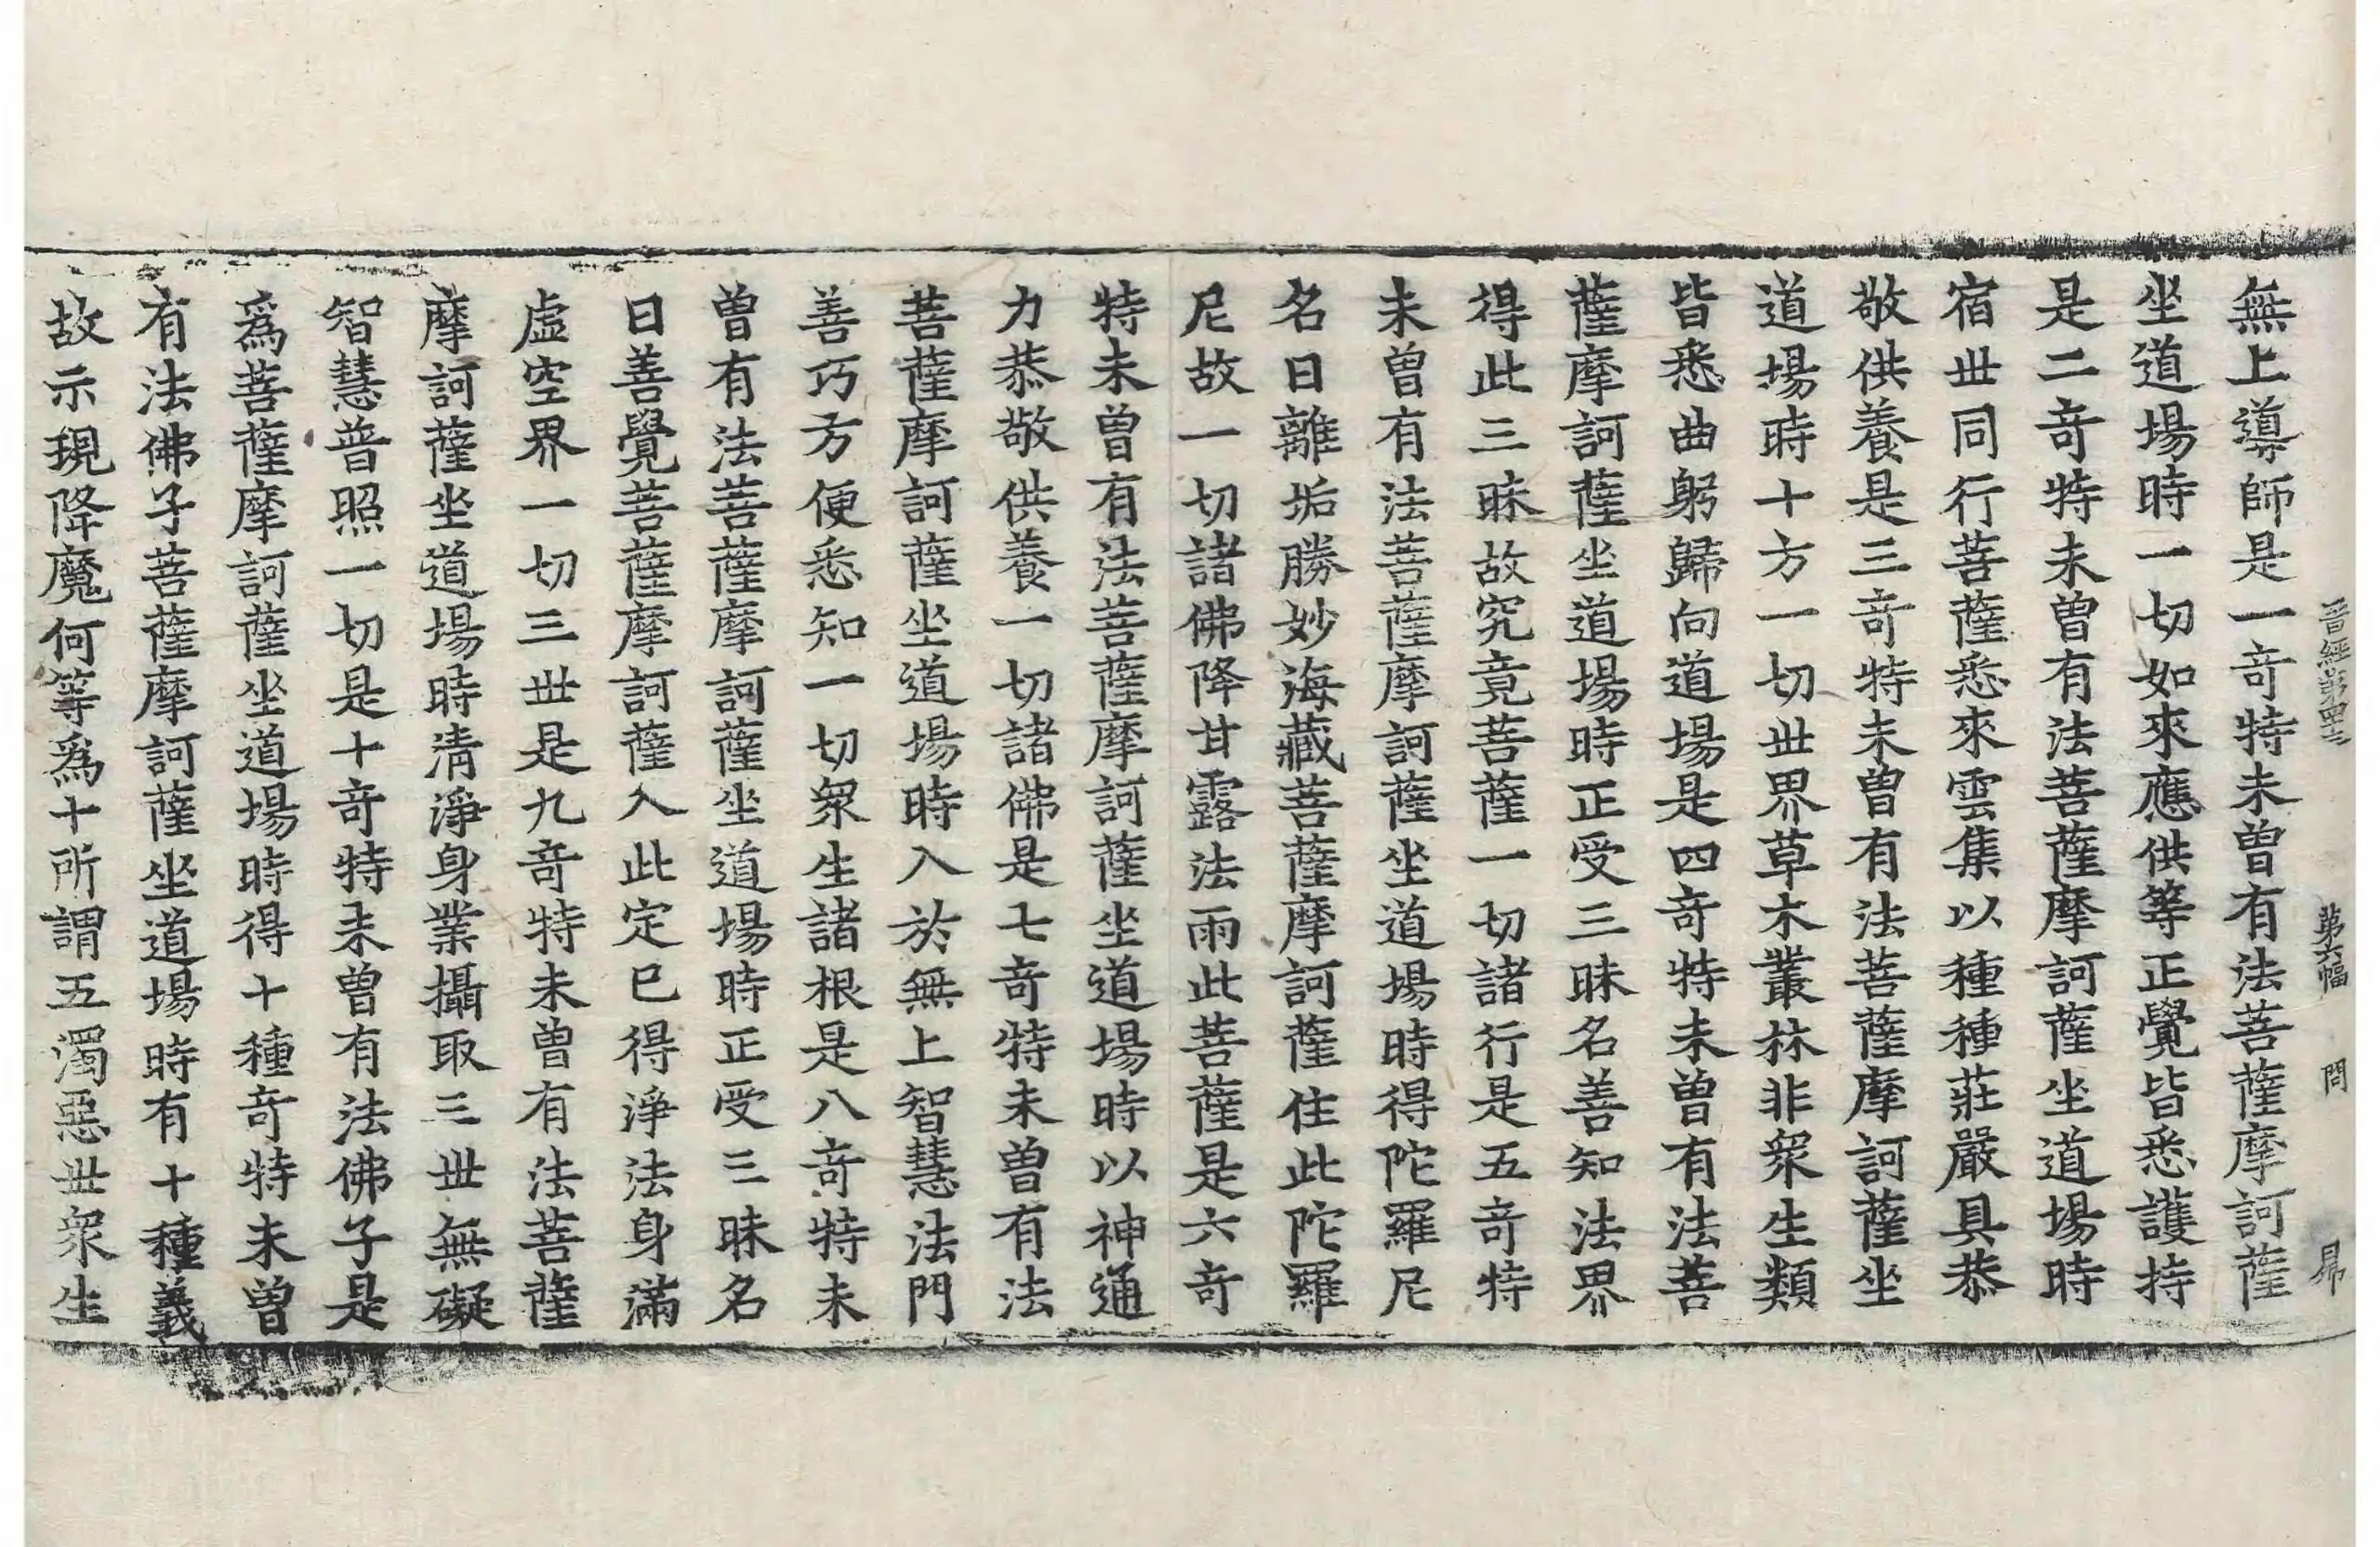 晋經第四十三 第六幅 問 昴
無上導師是一竒特未曽有法菩薩摩訶薩
坐道場時一切如來應供等正覺皆悉護持
是二竒特未曽有法菩薩摩訶薩坐道場時
宿丗同行菩薩悉來雲集以種種莊嚴具恭
敬供養是三竒特未曽有法菩薩摩訶薩坐
道場時十方一切丗界草木叢林非衆生類
皆悉曲躬歸向道場是四竒特未曽有法菩
薩摩訶薩坐道場時正受三昧名善知法界
得此三昧故究竟菩薩一切諸行是五竒特
未曽有法菩薩摩訶薩坐道場時得陀羅尼
名曰離垢勝妙海藏菩薩摩訶薩住此陀羅
尼故一切諸佛降甘露法雨此菩薩是六竒
特未曽有法菩薩摩訶薩坐道場時以神通
力恭敬供養一切諸佛是七竒特未曽有法
菩薩摩訶薩坐道場時入於無上智慧法門
善巧方便悉知一切衆生諸根是八竒特未
曽有法菩薩摩訶薩坐道場時正受三昧名
曰善覺菩薩摩訶薩入此定已得淨法身滿
虛空界一切三丗是九竒特未曽有法菩薩
摩訶薩坐道場時清淨身業攝取三丗無礙
智慧普照一切是十竒特未曽有法佛子是
爲菩薩摩訶薩坐道場時得十種竒特未曽
有法佛子菩薩摩訶薩坐道場時有十種義
故示現降魔何等爲十所謂五濁惡丗衆生